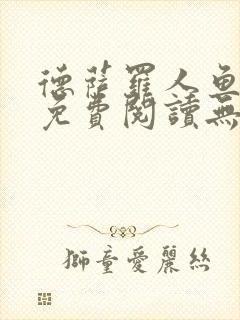 德薩羅人魚
免費閱讀無
獅童愛麗絲